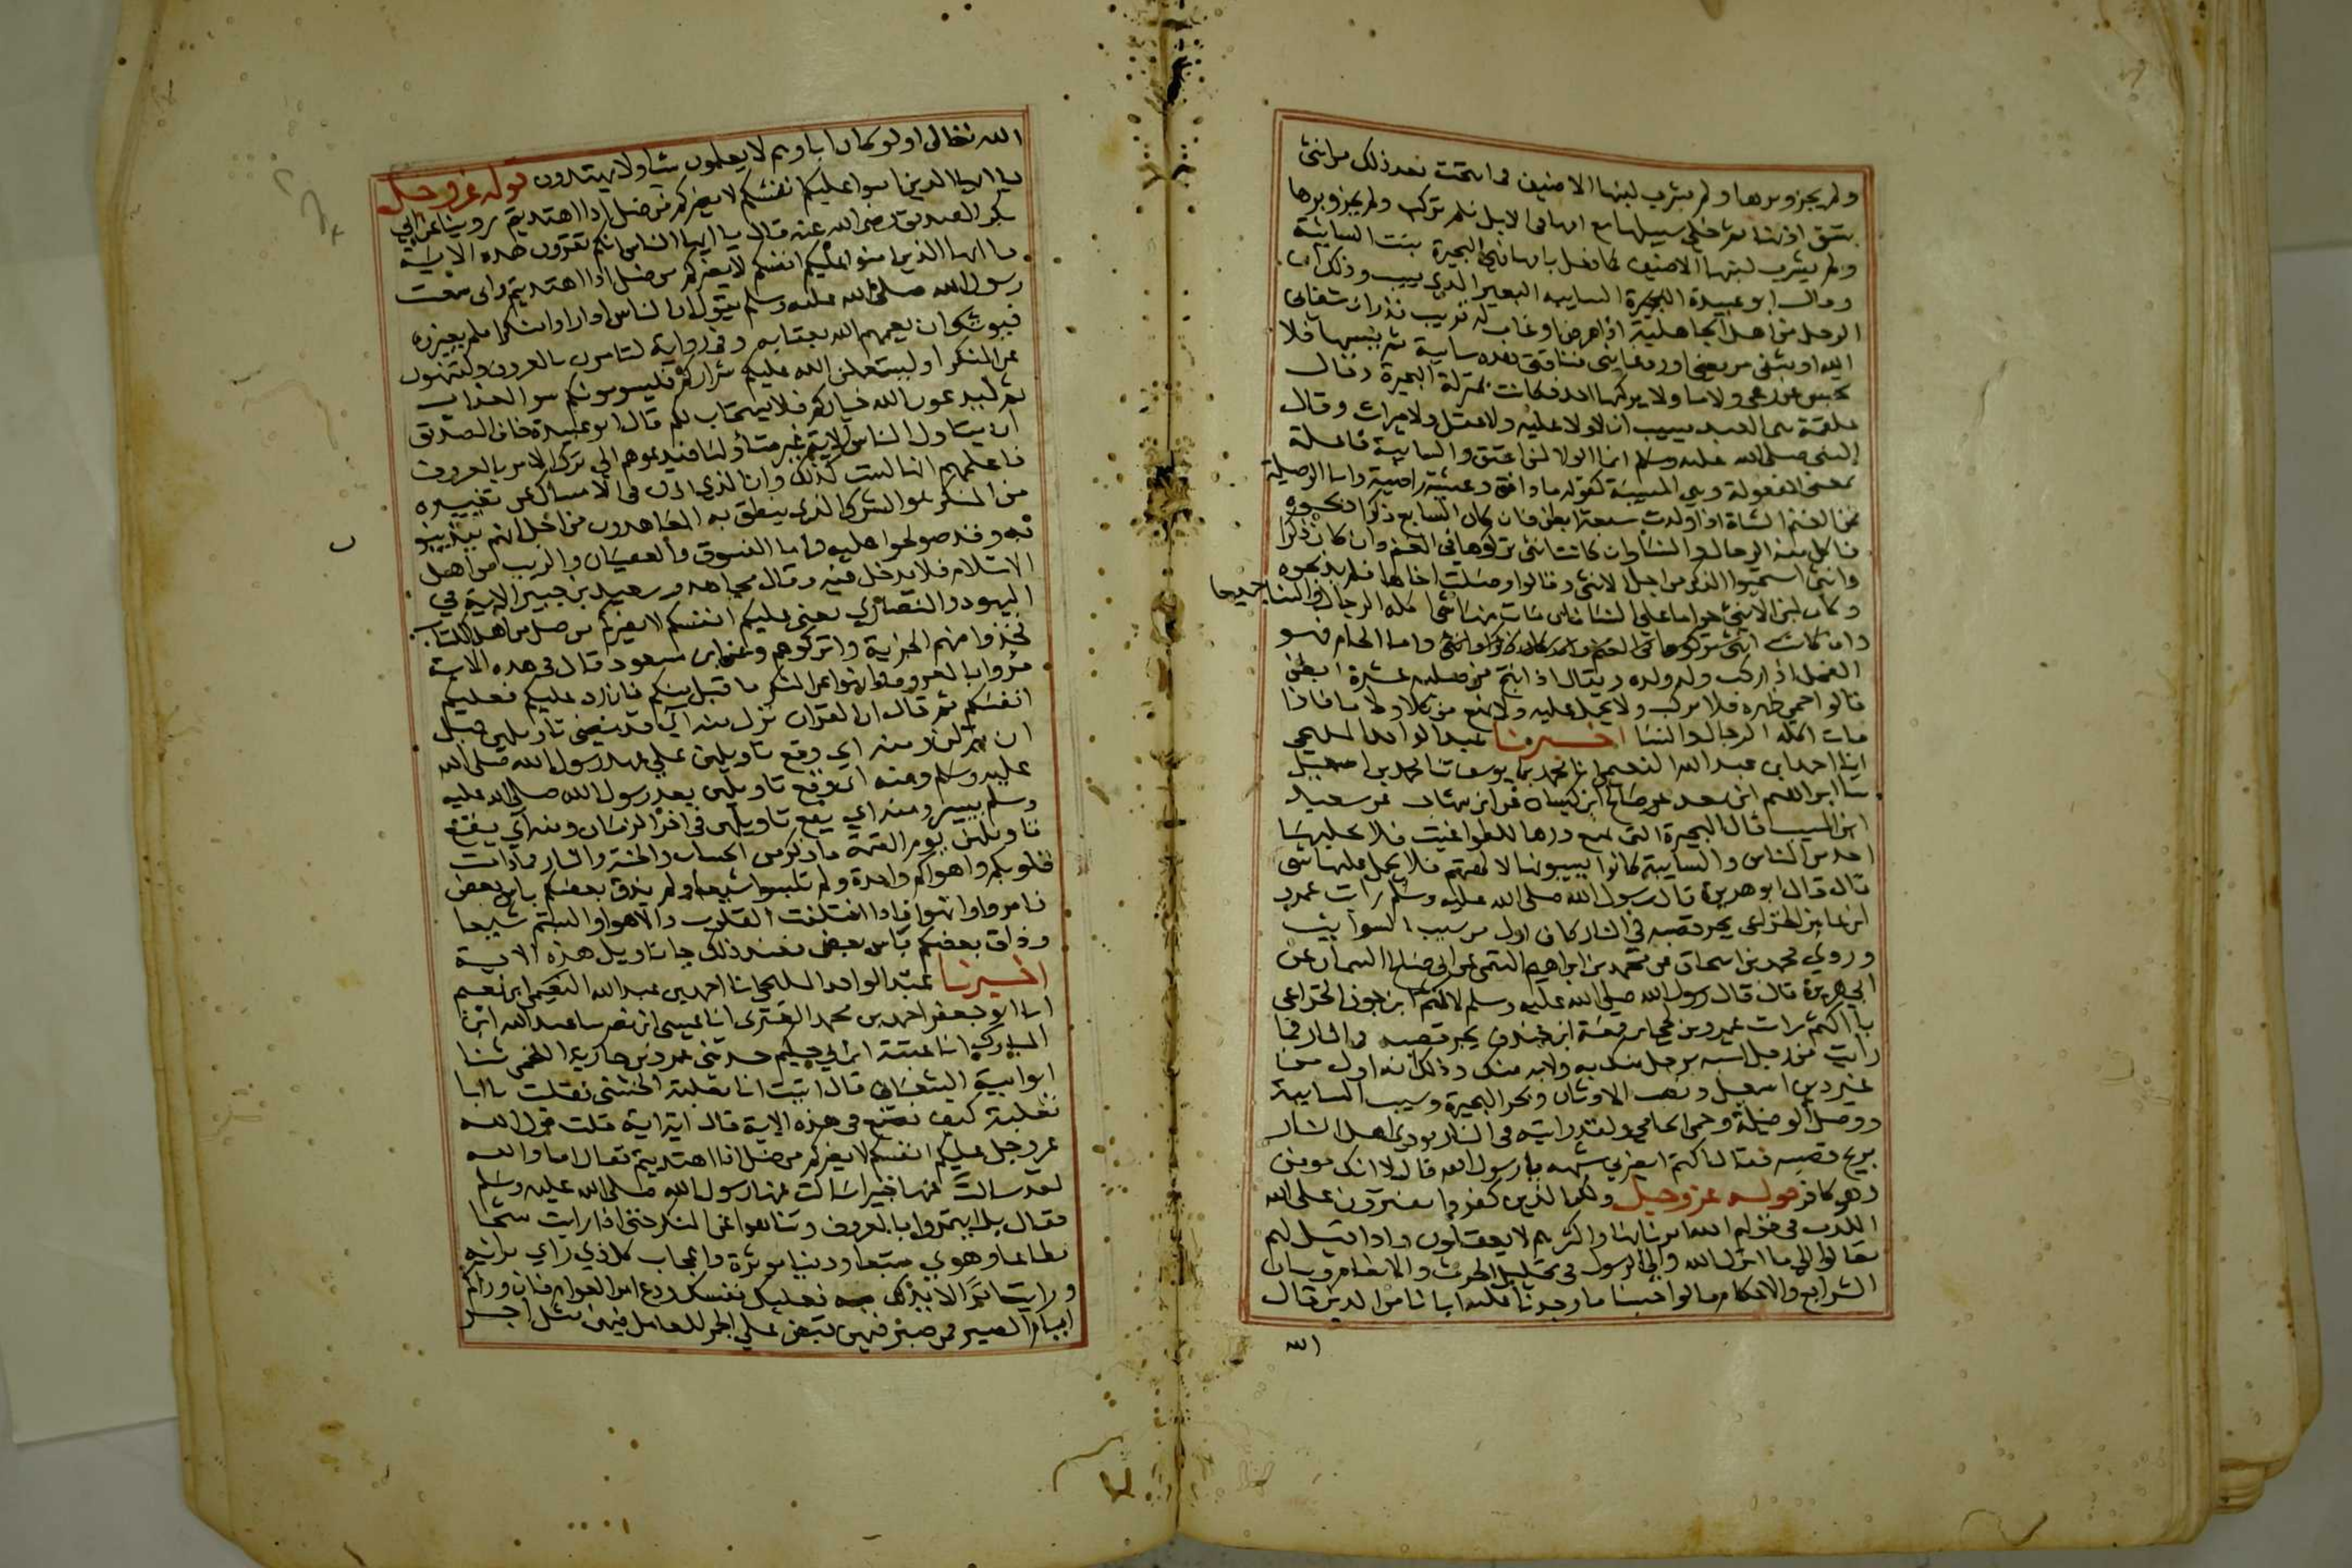 ولم يجز وبرها ولم يشرب لبنها الا ضيف فما نتجت بعد ذلك من انثى
شق اذنها ثم خلي سبيلها مع امها في الابل فلم تركب ولم يجز وبرها
ولم يشرب لبنها الا ضيف كما فعل بامها فهي البحيرة بنت السايبة
وقال ابو عبيدة السايبة البعير الذي يسيب وذلك ان
الرجل من اهل الجاهلية اذا مرض او غاب له قريب نذر ان شفاني
الله او شفى مريضي او رد غايبي فناقتي هذه سايبة ثم يسيبها فلا
تحبس عن رعي ولا ما ولا يركبها احد فكانت بمنزلة البحيرة وقال
علقمة هي العبد يسيب ان لا ولا عليه ولا عقل ولا ميراث وقال
النبي صلى الله عليه وسلم انما الولا لمن اعتق والسايبة فاعلة
بمعنى المفعولة وهي المسيبة كقوله ما دافق وعيشة راضية واما الوصيلة
فمن الغنم الشاة اذا ولدت سبعة ابطن فان كان السابع ذكرا ذبحوه
فاكل منه الرجال والنسا وان كانت انثى تركوها في الغنم وان كان ذكرا
وانثى استحيوا الذكر من اجل الانثى وقالوا وصلت اخاها فلم يذبحوه
وكان لبن الانثى حراما على النسا فان مات منها شي اكله الرجال والنسا جميعا
وان كانت انثى تركوها في الغنم واما الحام فهو
الفحل اذا ركب ولد ولده ويقال اذا نتج من صلبه عشرة ابطن
قالوا حمي ظهره فلا يركب ولا يحمل عليه ولا يمنع من كلا ولا ما فاذا
مات اكله الرجال والنسا اخبرنا عبد الواحد المليحي
انا احمد بن عبد الله النعيمي انا محمد بن يوسف ثنا محمد بن اسمعيل
ثنا ابراهيم ابن سعد عن صالح ابن كيسان عن ابن شهاب عن سعيد
ابن المسيب قال البحيرة التي يمنع درها للطواغيت فلا يحلبها
احد من الناس والسايبة كانوا يسيبونها لالهتهم فلا يحمل عليها شي
قال قال ابو هريرة قال رسول الله صلى الله عليه وسلم رايت عمرو
ابن عامر الخزاعي يجر قصبه في النار كان اول من سيب السوايب
وروي محمد بن اسحاق عن محمد بن ابراهيم التيمي عن ابي صالح السمان عن
ابي هريرة قال قال رسول الله صلى الله عليه وسلم لاكثم ابن جون الخزاعي
يا اكثم رايت عمرو بن لحي ابن قمعة ابن خندف يجر قصبه في النار فما
رايت من رجل اشبه برجل منك به ولا به منك وذلك انه اول من
غير دين اسمعيل ونصب الاوثان وبحر البحيرة وسيب السايبة
ووصل الوصيلة وحمى الحامي ولقد رايته في النار يوذي اهل النار
بريح قصبه فقال اكثم ايضرني شبهه يا رسول الله قال لا انك مومن
وهو كافر قوله عز وجل ولكن الذين كفروا يفترون على الله
الكذب في قولهم الله امرنا بها واكثرهم لا يعقلون واذا قيل لهم
تعالوا الى ما انزل الله والى الرسول في تحليل الحرث والانعام وبيان
الشرايع والاحكام قالوا حسبنا ما وجدنا عليه اباءنا من الدين قال
الله
الله تعالى اولو كان اباوهم لا يعلمون شيا ولا يهتدون قوله عز وجل
يا ايها الذين امنوا عليكم انفسكم لا يضركم من ضل اذا اهتديتم روينا عن ابي
بكر الصديق رضي الله عنه قال يا ايها الناس انكم تقرون هذه الاية
يا ايها الذين امنوا عليكم انفسكم لا يضركم من ضل اذا اهتديتم واني سمعت
رسول الله صلى الله عليه وسلم يقول ان الناس اذا راوا منكرا فلم يغيروه
فيوشك ان يعمهم الله بعقابه وفي رواية لتامرن بالمعروف ولتنهون
عن المنكر او ليستعملن الله عليكم شراركم فليسومونكم سو العذاب
ثم ليدعون الله خياركم فلا يستجاب لكم قال ابو عبيدة خاف الصديق
ان يتاول الناس الاية غير متاولها فيدعوهم الى ترك الامر بالمعروف
فاعلمهم انها ليست كذلك وان الذي اذن في الامساك عن تغييره
من المنكر هو الشرك الذي ينطق به المعاهدون من اجل انهم يتدينو
به وقد صولحوا عليه فاما الفسوق والعصيان والريب من اهل
الاسلام فلا يدخل فيه وقال مجاهد وسعيد بن جبير الاية في
اليهود والنصارى يعني عليكم انفسكم لا يضركم من ضل من اهل الكتاب
فخذوا منهم الجزية واتركوهم وعن ابن مسعود قال في هذه الاية
مروا بالمعروف وانهوا عن المنكر ما قبل منكم فان رد عليكم فعليكم
انفسكم ثم قال ان القران نزل منه اي قد مضى تاويلهن قبل
ان ينزلن ومنه اي وقع تاويلهن على عهد رسول الله صلى الله
عليه وسلم ومنه اي وقع تاويلهن بعد رسول الله صلى الله عليه
وسلم بيسير ومنه اي يقع تاويلهن في اخر الزمان ومنه اي يقع
تاويلهن يوم القيمة ما ذكر من الحساب والجنة والنار فما دامت
قلوبكم واهواكم واحدة ولم تلبسوا شيعا ولم يذق بعضكم باس بعض
فامروا وانهوا فاذا اختلفت القلوب والاهوا والبستم شيعا
وذاق بعضكم باس بعض فعند ذلك جا تاويل هذه الاية
اخبرنا عبد الواحد المليحي انا احمد بن عبد الله النعيمي
انا ابو جعفر احمد بن محمد العنزي انا عيسى ابن نصر انا عبد الله ابن
المبارك انا عتبة ابن ابي حكيم حدثني عمرو بن جارية اللخمي ثنا
ابو امية الشعباني قال اتيت ابا ثعلبة الخشني فقلت يا ابا
ثعلبة كيف نصنع في هذه الاية قال اية اية قلت قول الله
عز وجل عليكم انفسكم لا يضركم من ضل اذا اهتديتم فقال اما والله
لقد سالت عنها خبيرا سالت عنها رسول الله صلى الله عليه وسلم
فقال بل ايتمروا بالمعروف وتناهوا عن المنكر حتى اذا رايت شحا
مطاعا وهوى متبعا ودنيا موثرة واعجاب كل ذي راي برايه
ورايت امرا لا بد لك منه فعليك نفسك ودع امر العوام فان وراكم
ايام الصبر فمن صبر فيهن قبض على الجمر للعامل فيهن مثل اجر